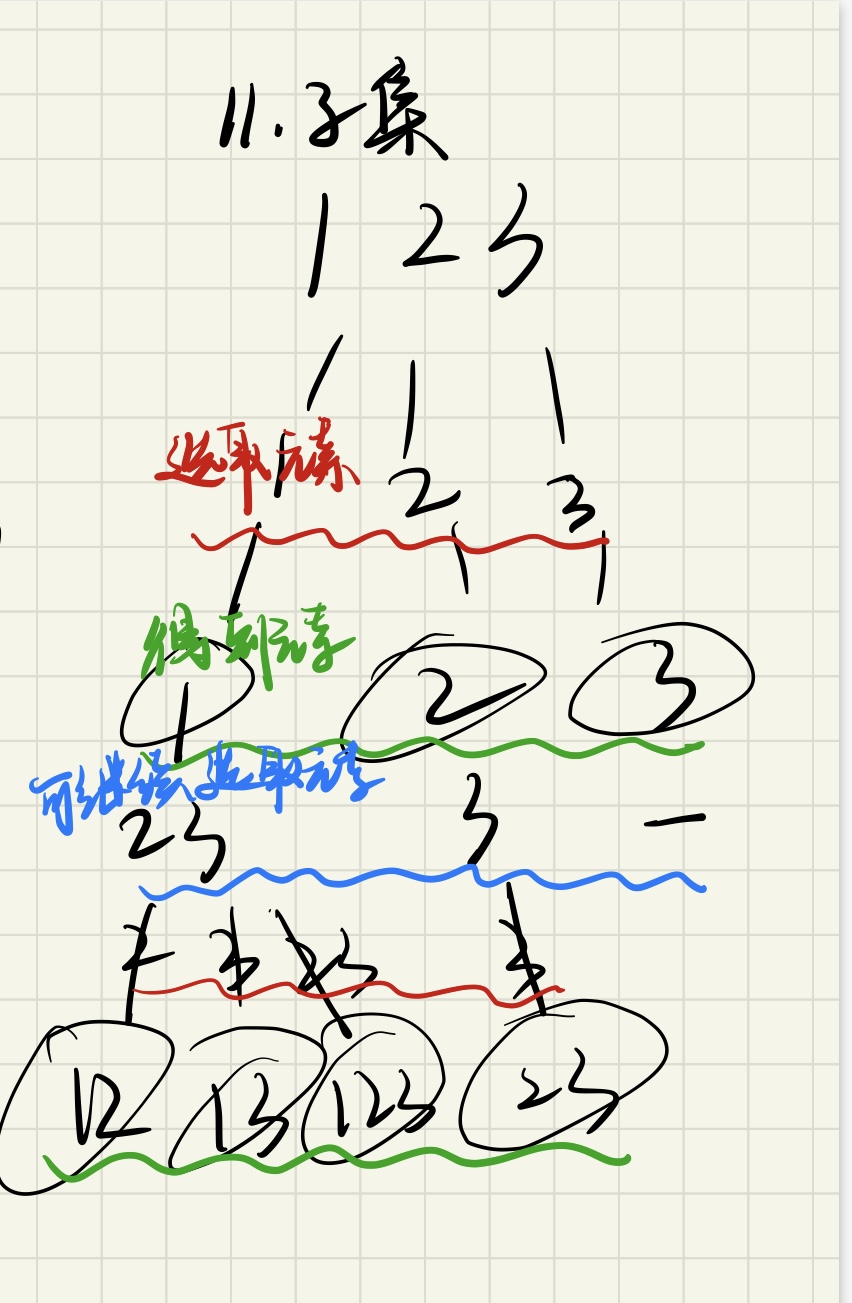 11.子集
1 2 3
选取元素
1 2 3
得到元素
1 2 3
可继续选取元素
23 3 —
2 3 23 3
12 13 123 23